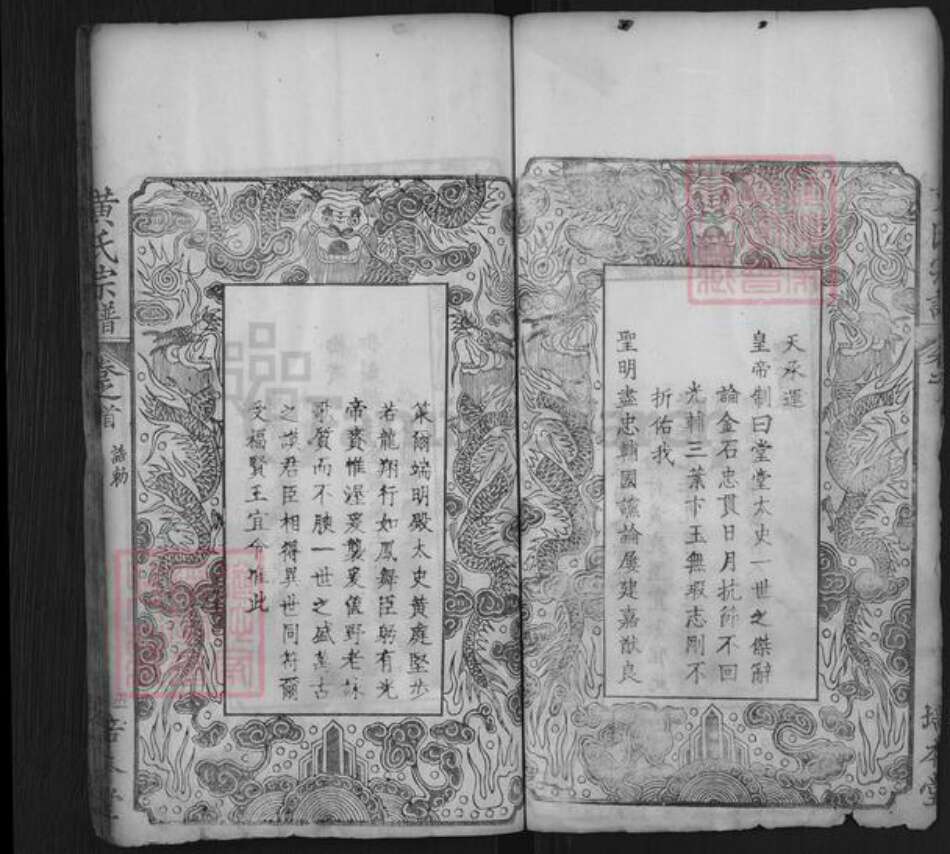 天承運
皇帝制曰堂堂太史一世之傑辭
論金石忠貫日月抗節不回
光輔三葉卞玉無瑕志剛不
折佑我
聖明盡忠輔國讜論屢建嘉猷良
策爾端明殿太史黃庭堅步
若龍翔行如鳳舞臣躬有光
帝賚惟渥爰製爰儀野老詠
歌質而不腴一世之盛萬古
之談君臣相得異世同符爾
受福賢王宜令准此
黃氏宗譜
卷之首
誥勅